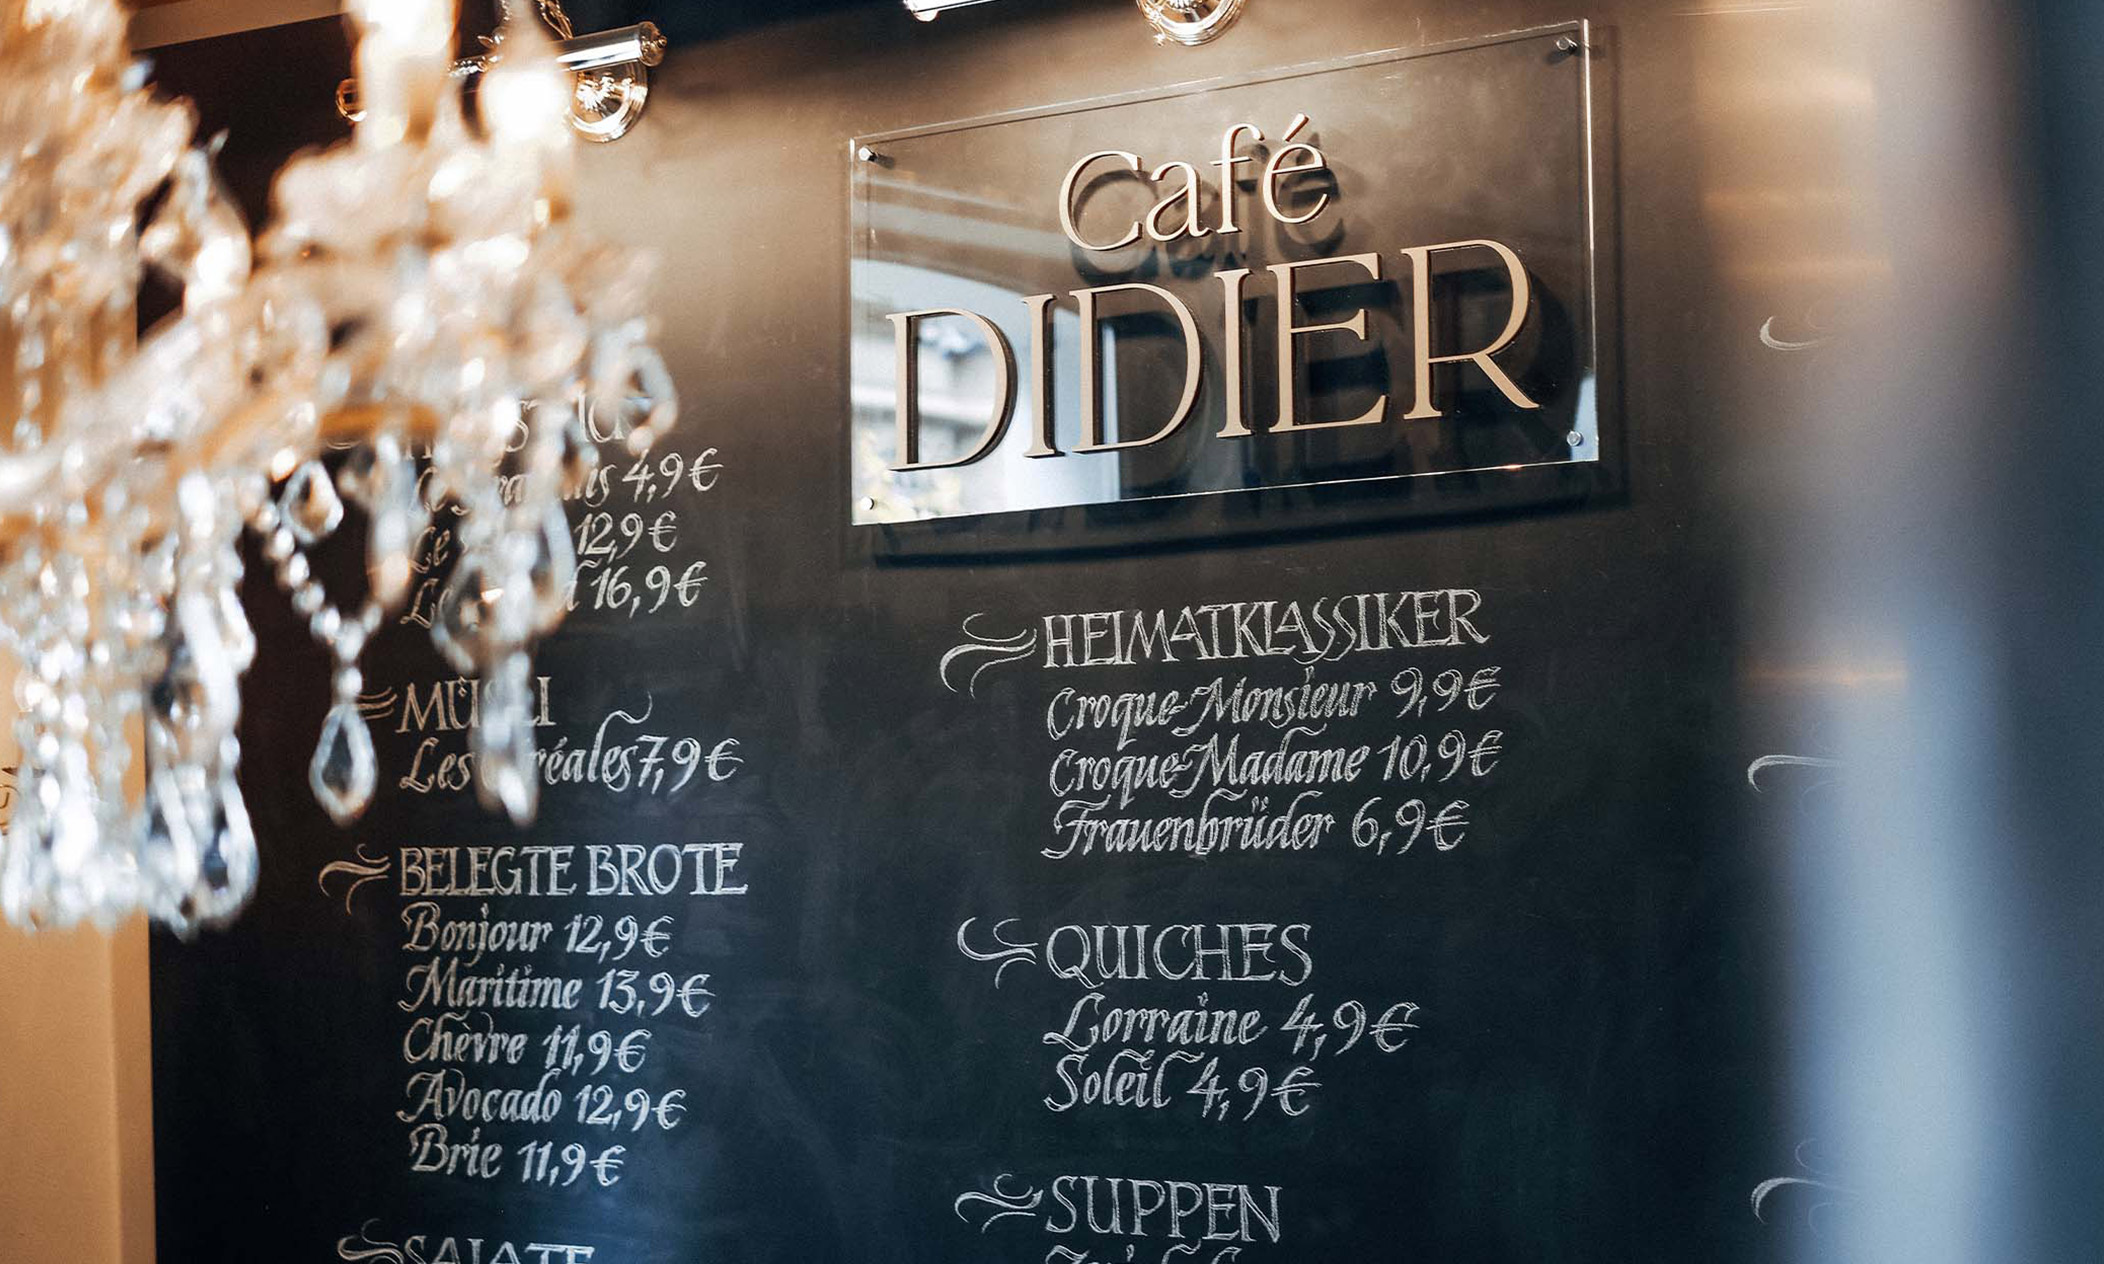 Café
DIDIER
4,9€
Le 12,9€
16,9€
MÜSLI
Les Céréales 7,9€
BELEGTE BROTE
Bonjour 12,9€
Maritime 13,9€
Chèvre 11,9€
Avocado 12,9€
Brie 11,9€
SALATE
HEIMATKLASSIKER
Croque-Monsieur 9,9€
Croque-Madame 10,9€
Frauenbrüder 6,9€
QUICHES
Lorraine 4,9€
Soleil 4,9€
SUPPEN